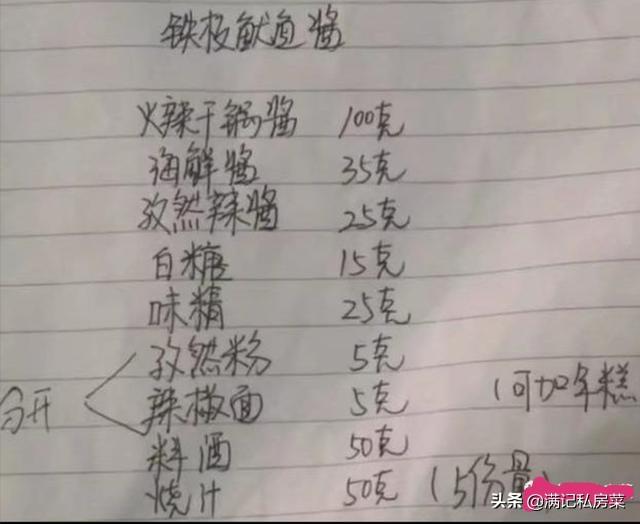 铁板鱿鱼酱
火辣干锅酱 100克
海鲜酱 35克
孜然辣酱 25克
白糖 15克
味精 25克
孜然粉 5克
分开 辣椒面 5克 (可加年糕
料酒 50克
烧汁 50克 (15份量)
头条 @满记私房菜